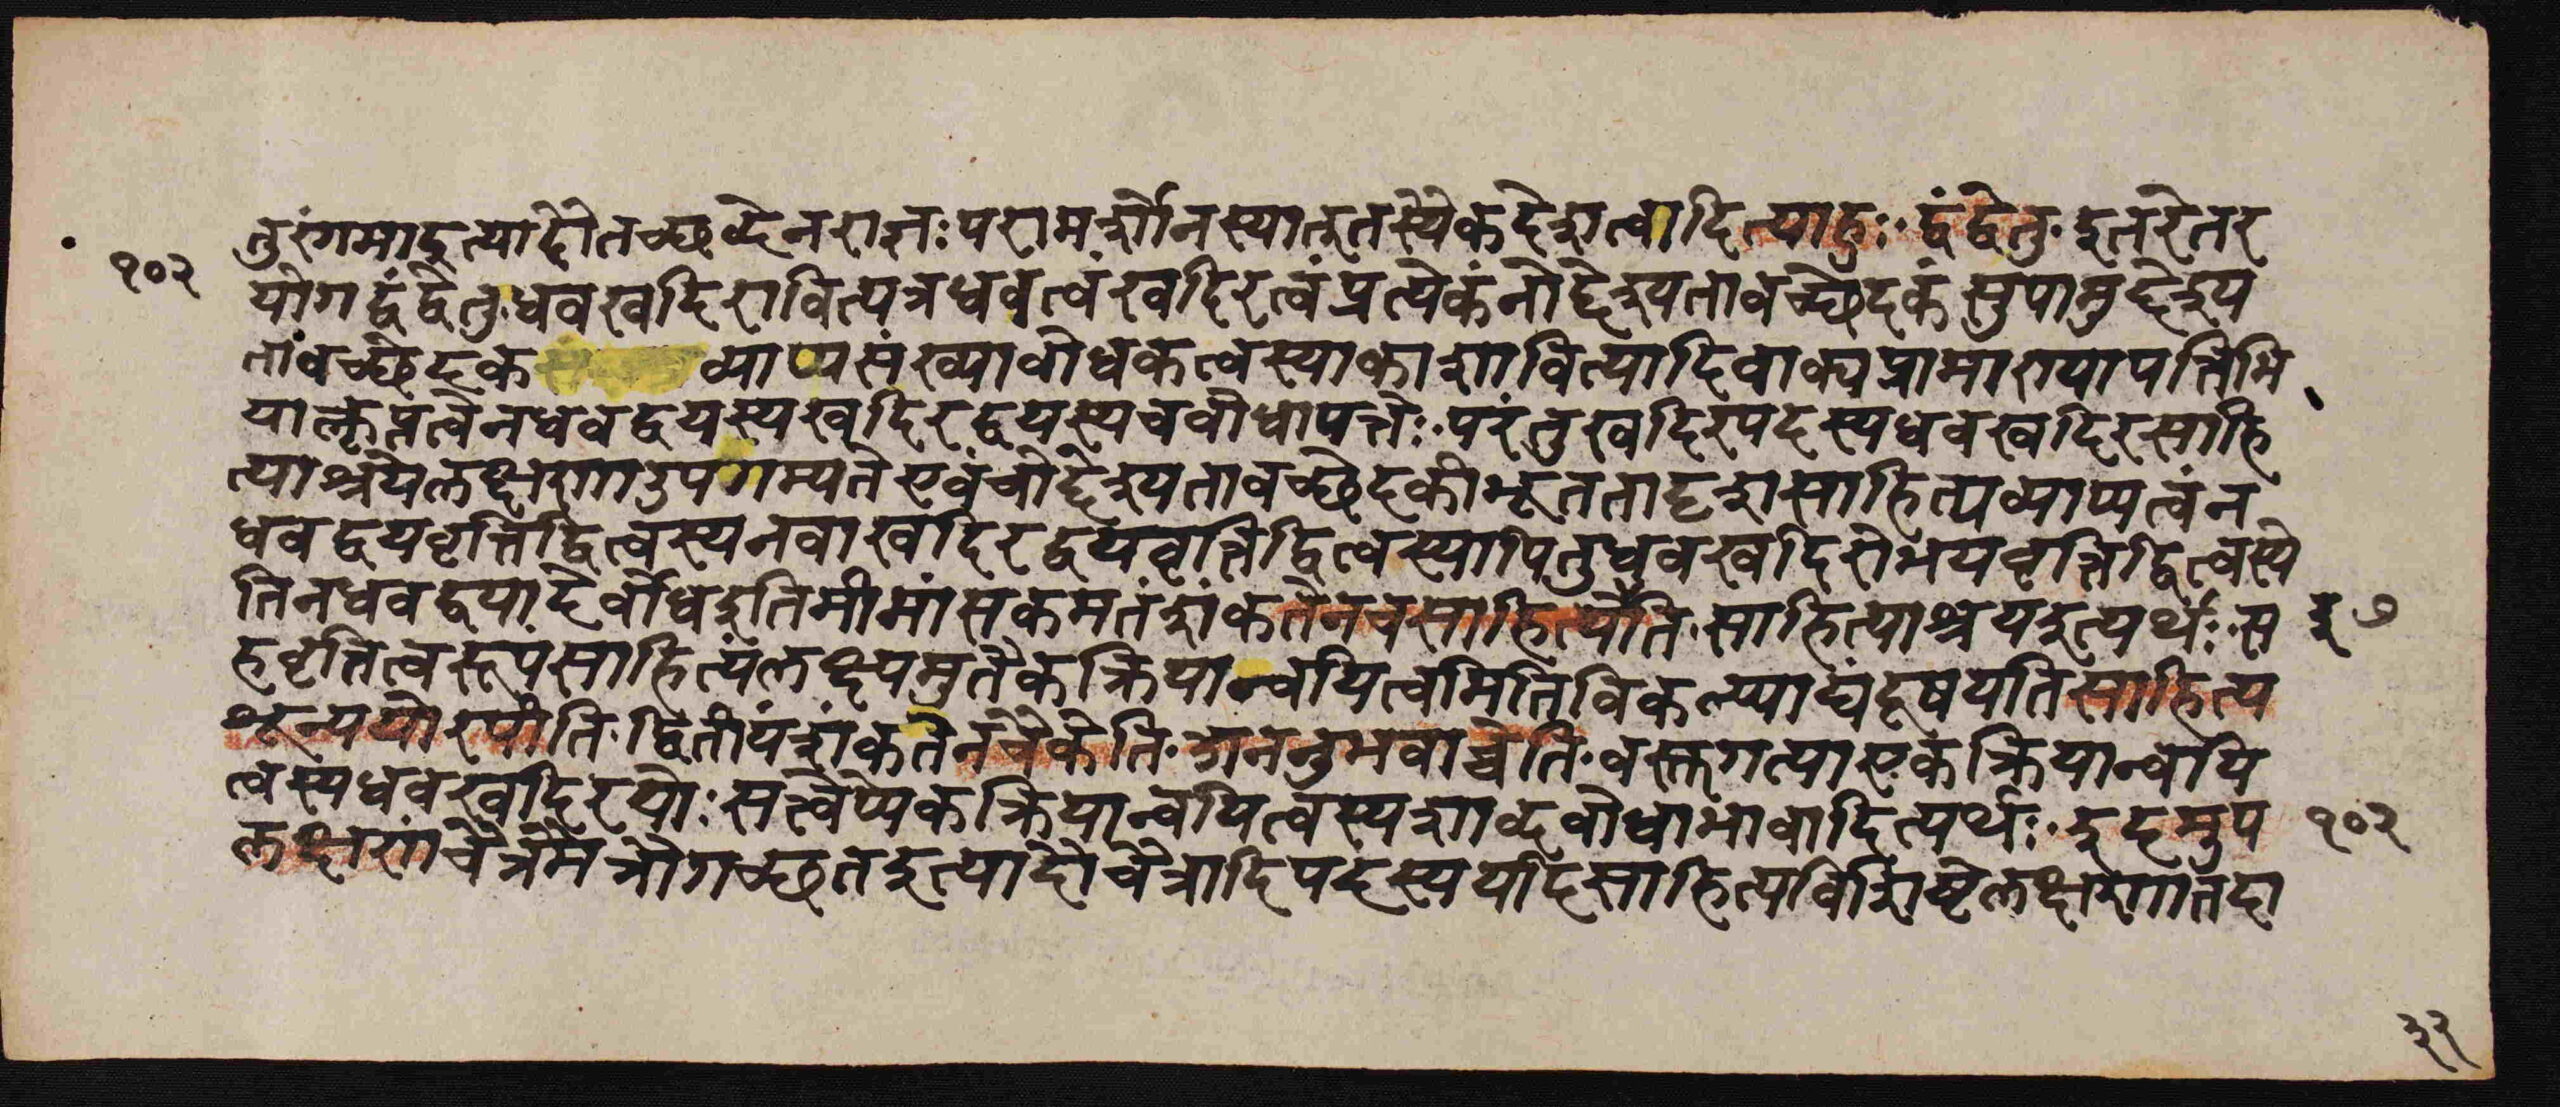 तुरंगमाइत्यादौतच्छब्देनराज्ञःपरामर्शोनस्यात्तस्यैकदेशत्वादित्याहुः द्वंद्वेतु इतरेतर
१०२
योगद्वंद्वेतुधवखदिरावित्यत्रधवत्वंखदिरत्वंप्रत्येकंनोद्देश्यतावच्छेदकं सुपामुद्देश्य
तावच्छेदक व्याप्यसंख्यावोधकत्वस्याकाशावित्यादिवाक्यप्रामाण्यापत्तिभि
याकॢप्तत्वेनधवद्वयस्यखदिरद्वयस्यचवोधापत्तेः परंतुखदिरपदस्यधवखदिरसाहि
त्याश्रयेलक्षणाऽपगम्यते एवंचोद्देश्यतावच्छेदकीभूततादृशसाहित्यव्याप्यत्वंन
धवद्वयवृत्तिद्वित्वस्यनवाखदिरद्वयवृत्तिद्वित्वस्यापितुधवखदिरोभयवृत्तिद्वित्वस्ये
तिनधवद्वयादेर्वोधइतिमीमांसकमतंशंकतेनचसाहित्येति साहित्याश्रयइत्यर्थः स
हवृत्तित्वरूपंसाहित्यंलक्ष्यमुतैकक्रियान्वयित्वमितिविकल्प्याद्यंदूषयतिसाहित्य
शून्ययोरपीति द्वितीयंशंकतेनचैकेति अननुभवाच्चेति वस्तुगत्याएकक्रियान्वयि
त्वस्यधवखदिरयोः सत्त्वेप्येकक्रियान्वयित्वस्यशाब्दवोधाभावादित्यर्थः इदमुप
१०२
लक्षणंचैत्रमैत्रौगच्छतइत्यादौचैत्रादिपदस्ययदिसाहित्यविशिष्टेलक्षणातदा
३२